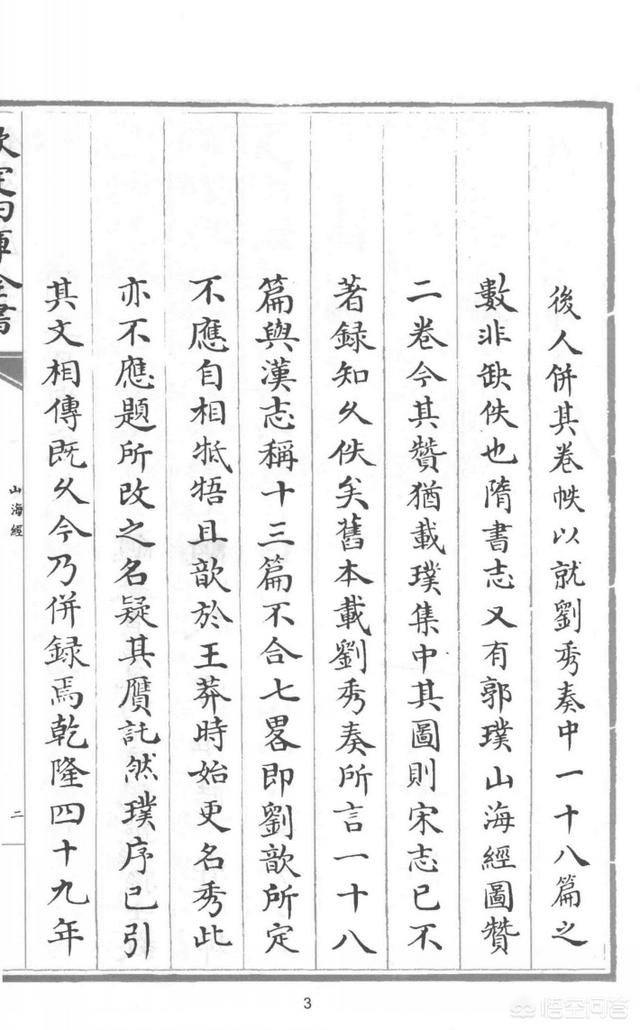 後人併其卷帙以就劉秀奏中一十八篇之
數非缺佚也隋書志又有郭璞山海經圖贊
二卷今其贊猶載璞集中其圖則宋志已不
著録知久佚矣舊本載劉秀奏所言一十八
篇與漢志稱十三篇不合七畧即劉歆所定
不應自相牴牾且歆於王莽時始更名秀此
亦不應題所改之名疑其贋託然璞序已引
其文相傳既久今乃併録焉乾隆四十九年
欽定四庫全書
山海經
二
3
悟空问答